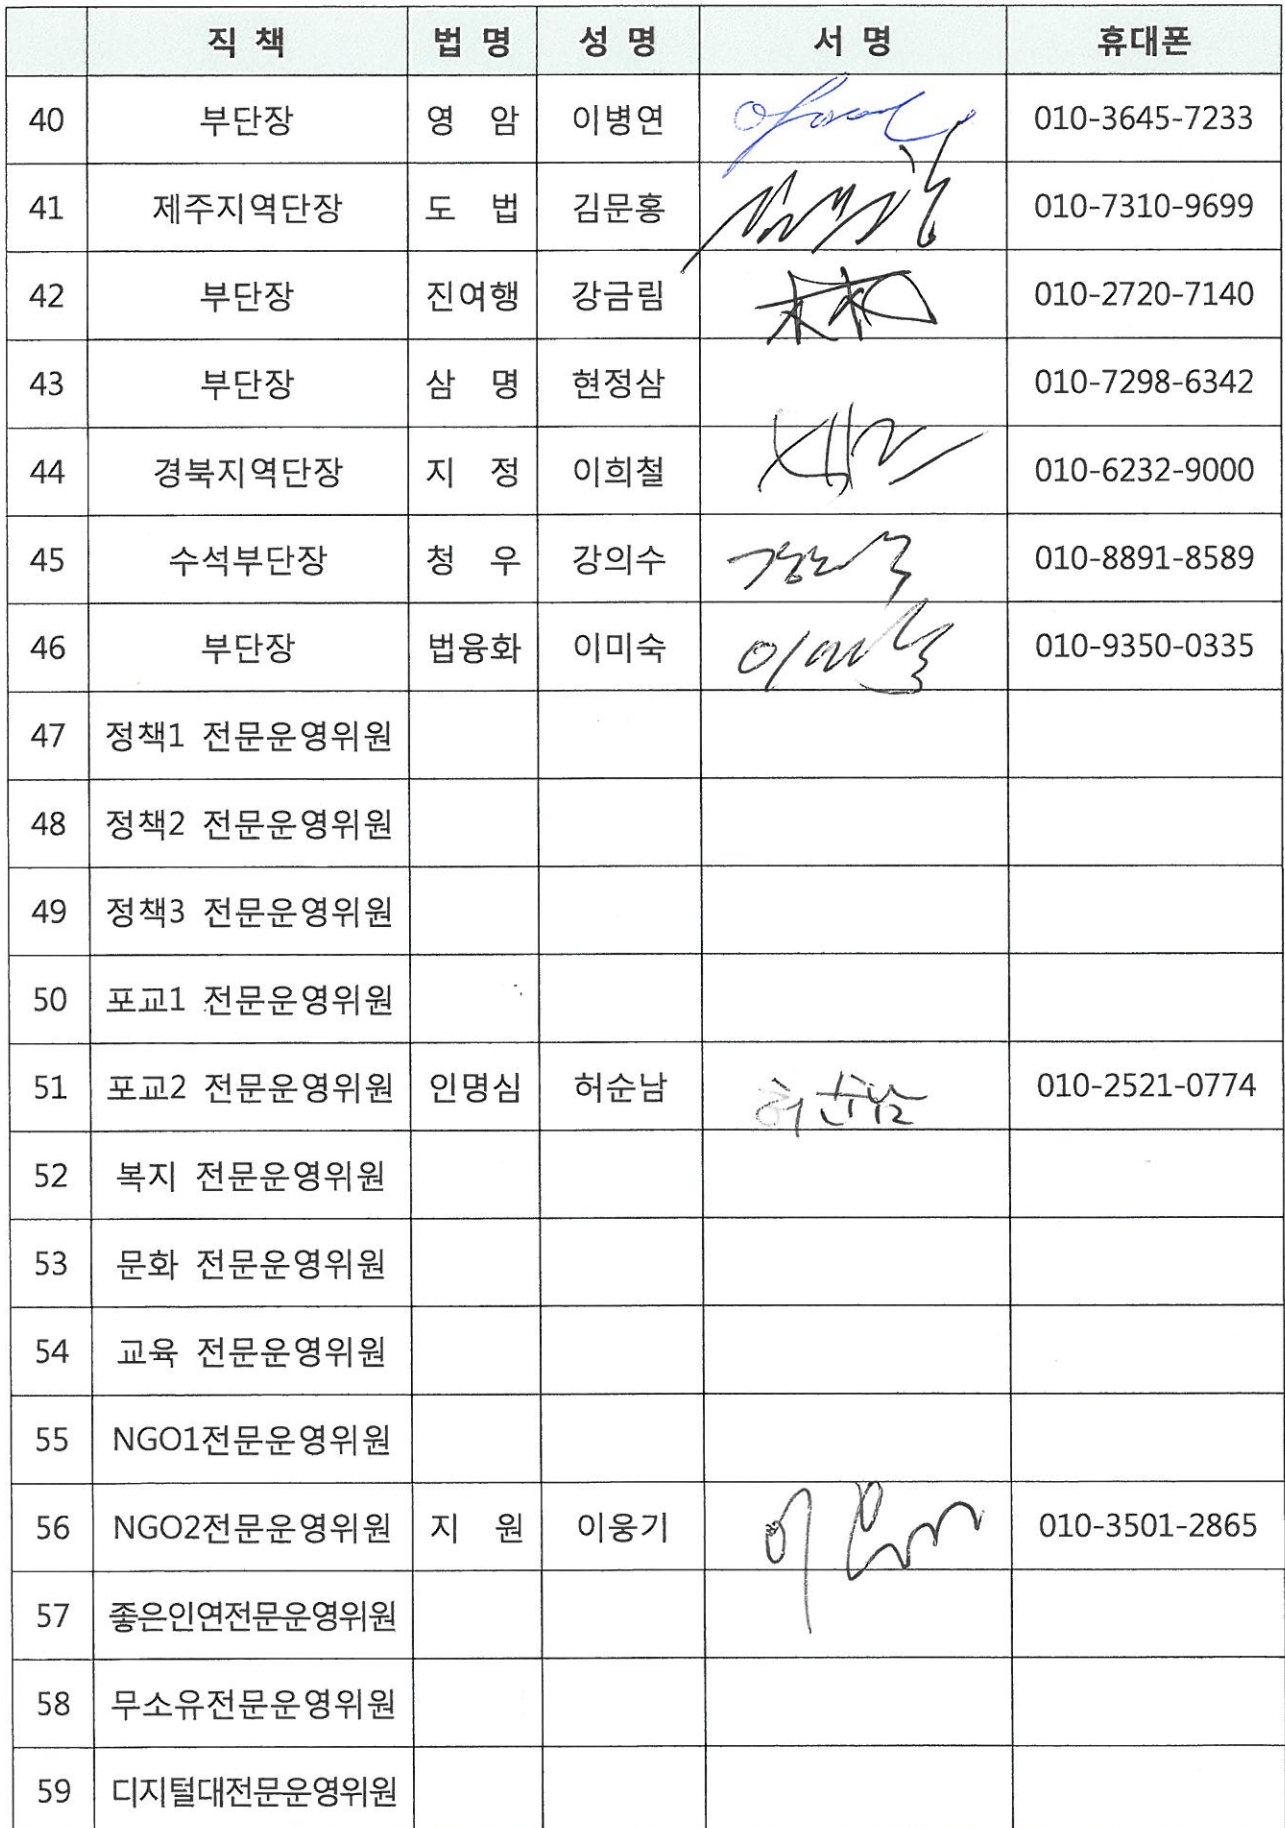 직 책 법 명 성 명 서 명 휴대폰
40 부단장 영 암 이병연 010-3645-7233
41 제주지역단장 도 법 김문홍 010-7310-9699
42 부단장 진여행 강금림 010-2720-7140
43 부단장 삼 명 현정삼 010-7298-6342
44 경북지역단장 지 정 이희철 010-6232-9000
45 수석부단장 청 우 강의수 010-8891-8589
46 부단장 법융화 이미숙 이미숙 010-9350-0335
47 정책1 전문운영위원
48 정책2 전문운영위원
49 정책3 전문운영위원
50 포교1 전문운영위원
51 포교2 전문운영위원 인명심 허순남 허순남 010-2521-0774
52 복지 전문운영위원
53 문화 전문운영위원
54 교육 전문운영위원
55 NGO1전문운영위원
56 NGO2전문운영위원 지 원 이웅기 010-3501-2865
57 좋은인연전문운영위원
58 무소유전문운영위원
59 디지털대전문운영위원